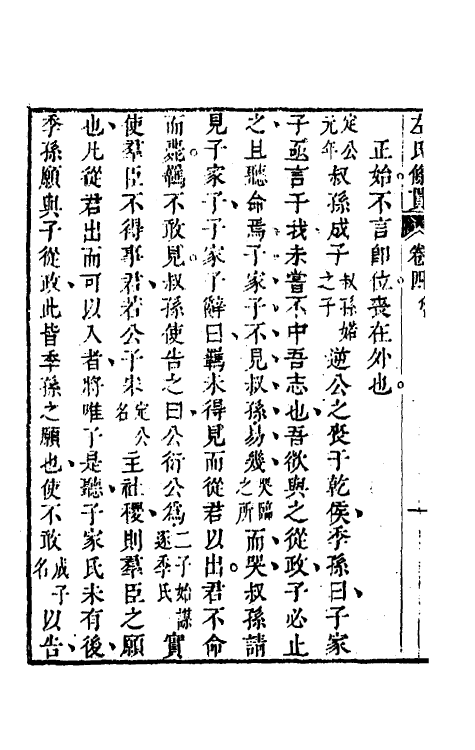 左氏條貫 卷四
正始不言即位喪在外也
定公元年叔孫成子叔孫婼之子逆公之喪于乾侯季孫曰子家
子亟言于我未嘗不中吾志也吾欲與之從政子必止
之且聽命焉子家子不見叔孫易幾哭臨之所而哭叔孫請
見子家子子家子辭曰羈未得見而從君以出君不命
而薨羈不敢見叔孫使告之曰公衍公爲二子始謀逐季氏實
使羣臣不得事君若公子宋定公名主社稷則羣臣之願
也凡從君出而可以入者將唯子是聽子家氏未有後
季孫願與子從政此皆季孫之願也使不敢成子名以告